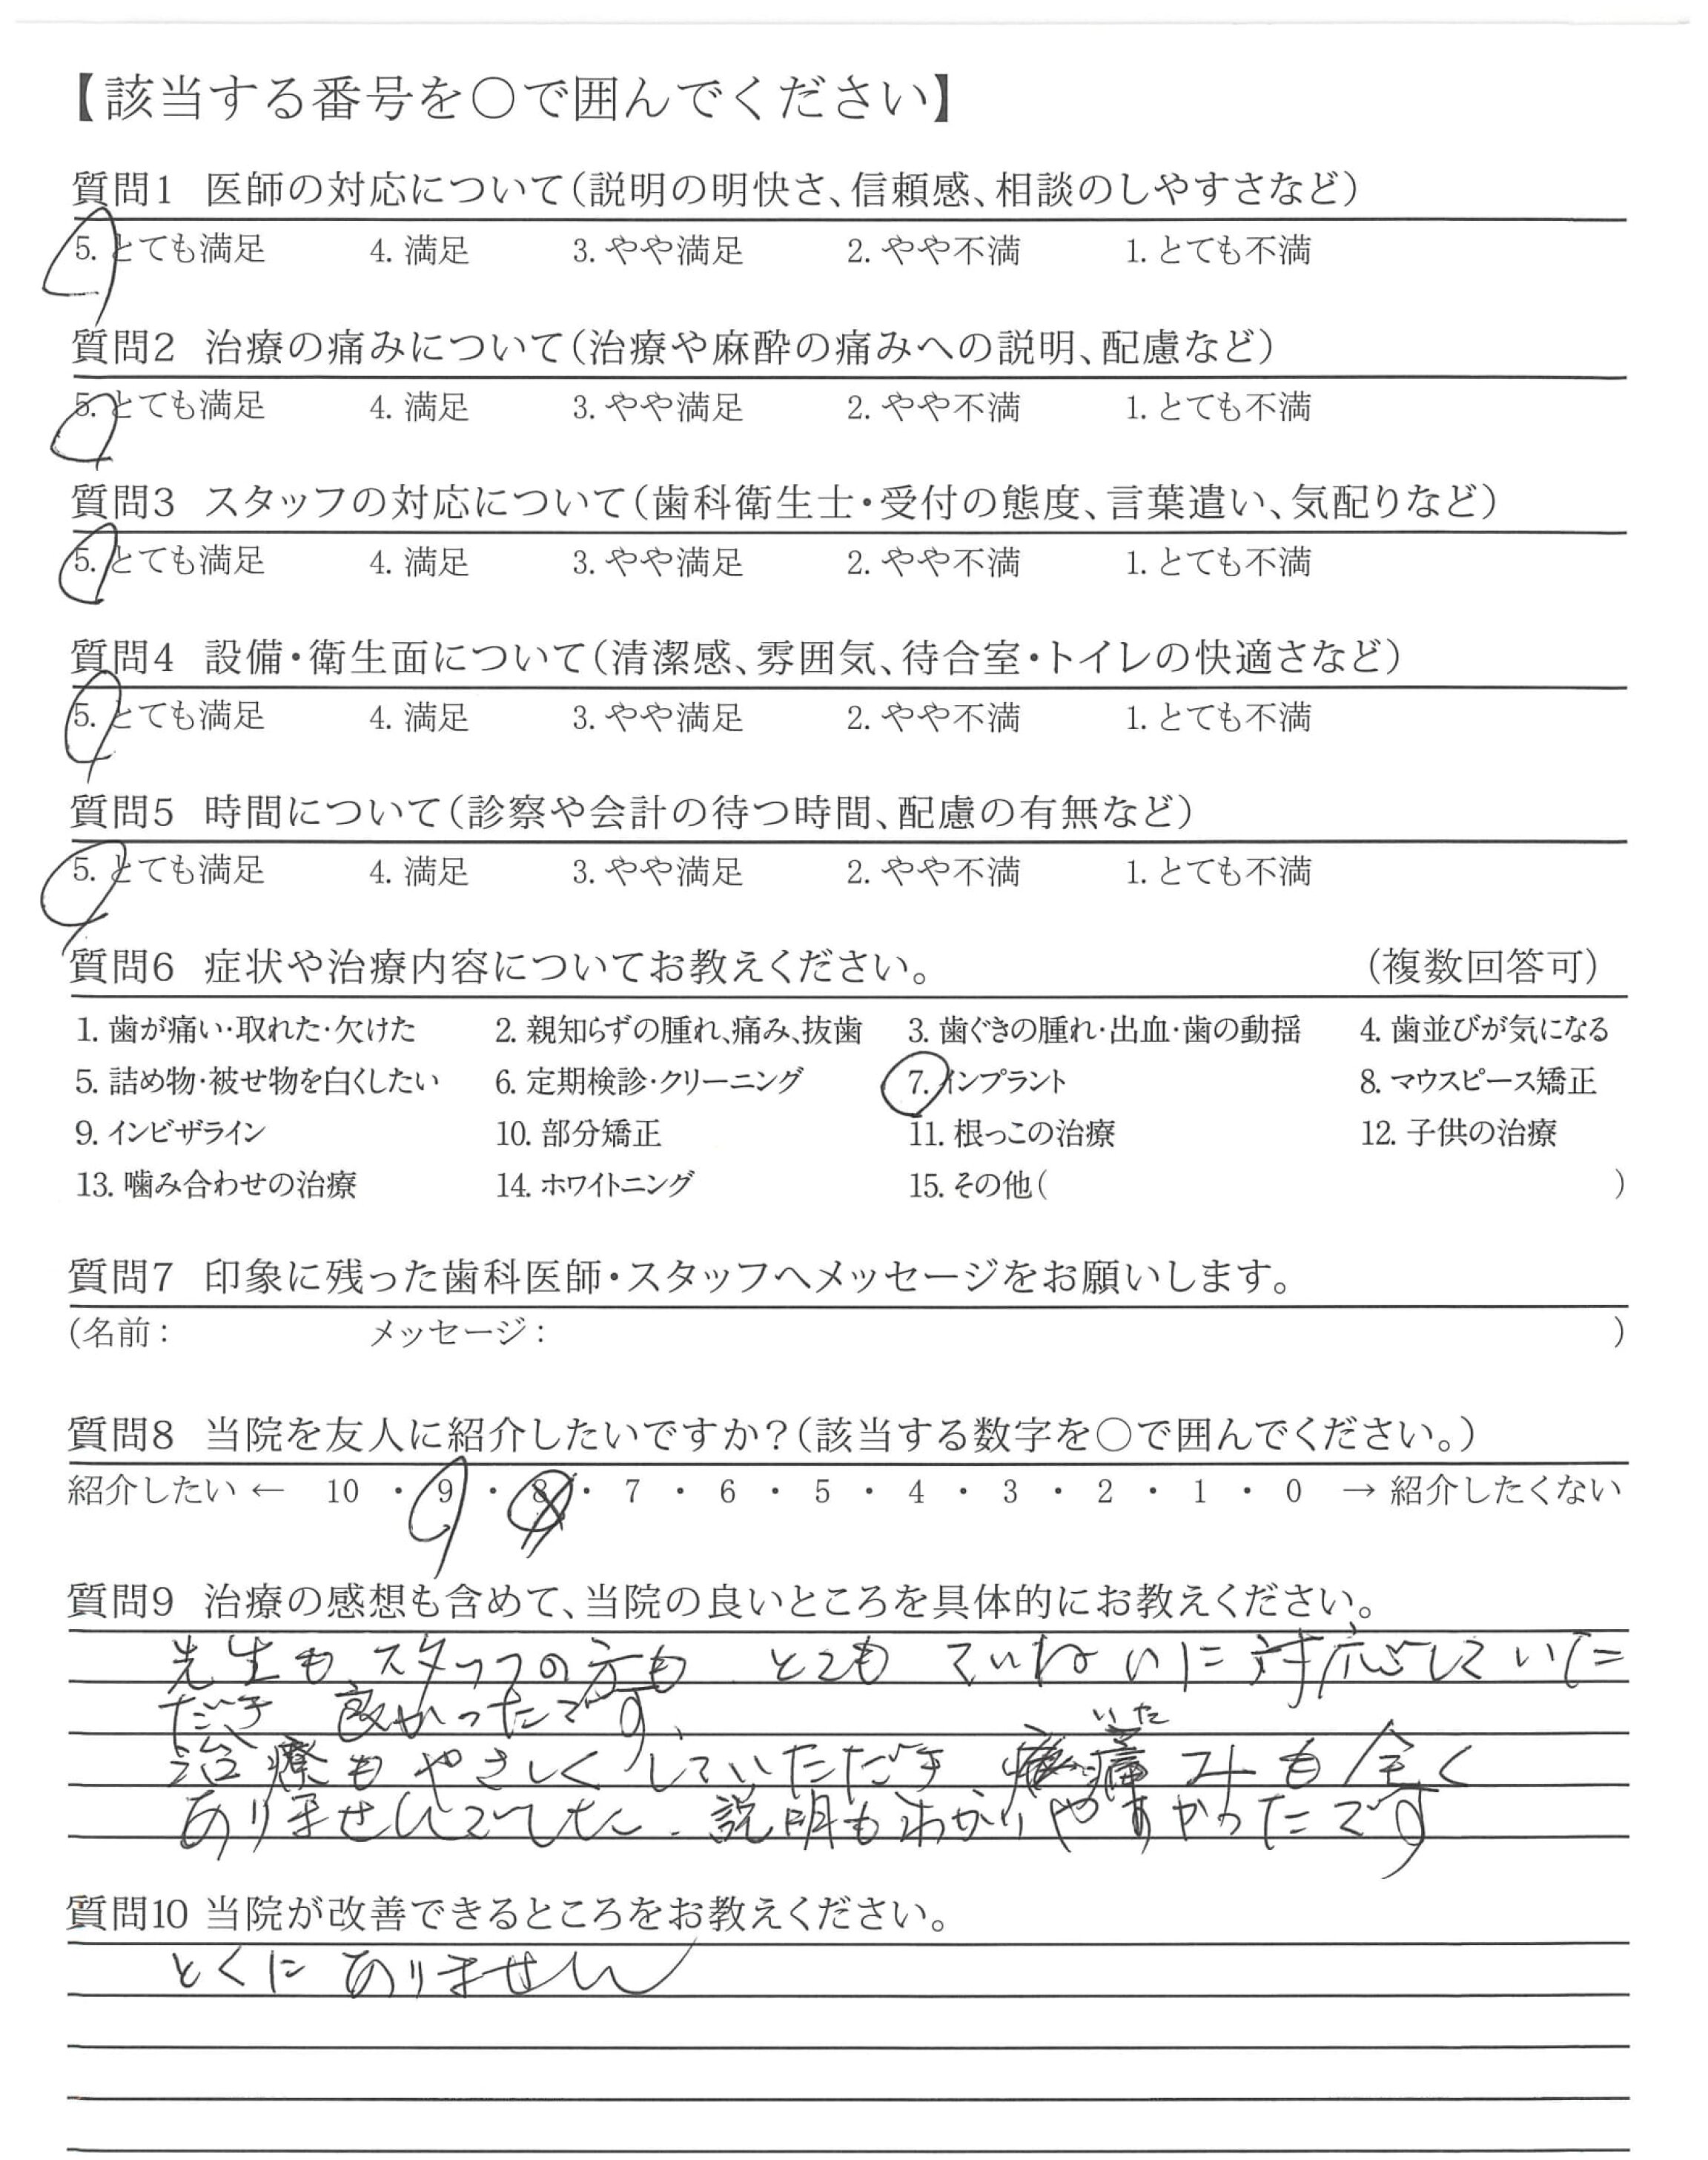 【該当する番号を〇で囲んでください】
質問1 医師の対応について(説明の明快さ、信頼感、相談のしやすさなど)
5. とても満足 4. 満足 3. やや満足 2. やや不満 1. とても不満
質問2 治療の痛みについて(治療や麻酔の痛みへの説明、配慮など)
5. とても満足 4. 満足 3. やや満足 2. やや不満 1. とても不満
質問3 スタッフの対応について(歯科衛生士・受付の態度、言葉遣い、気配りなど)
5. とても満足 4. 満足 3. やや満足 2. やや不満 1. とても不満
質問4 設備・衛生面について(清潔感、雰囲気、待合室・トイレの快適さなど)
5. とても満足 4. 満足 3. やや満足 2. やや不満 1. とても不満
質問5 時間について(診察や会計の待つ時間、配慮の有無など)
5. とても満足 4. 満足 3. やや満足 2. やや不満 1. とても不満
質問6 症状や治療内容についてお教えください。 (複数回答可)
1. 歯が痛い・取れた・欠けた 2. 親知らずの腫れ、痛み、抜歯 3. 歯ぐきの腫れ・出血・歯の動揺 4. 歯並びが気になる
5. 詰め物・被せ物を白くしたい 6. 定期検診・クリーニング 7. インプラント 8. マウスピース矯正
9. インビザライン 10. 部分矯正 11. 根っこの治療 12. 子供の治療
13. 噛み合わせの治療 14. ホワイトニング 15. その他( )
質問7 印象に残った歯科医師・スタッフへメッセージをお願いします。
(名前: メッセージ: )
質問8 当院を友人に紹介したいですか?(該当する数字を〇で囲んでください。)
紹介したい ← 10 ・ 9 ・ 8 ・ 7 ・ 6 ・ 5 ・ 4 ・ 3 ・ 2 ・ 1 ・ 0 → 紹介したくない
質問9 治療の感想も含めて、当院の良いところを具体的にお教えください。
先生もスタッフの方も とてもていねいに対応していた
だき 良かったです、
いた
治療もやさしくしていただき 痛みも全く
ありませんでした. 説明もわかりやすかったです
質問10 当院が改善できるところをお教えください。
とくに ありません